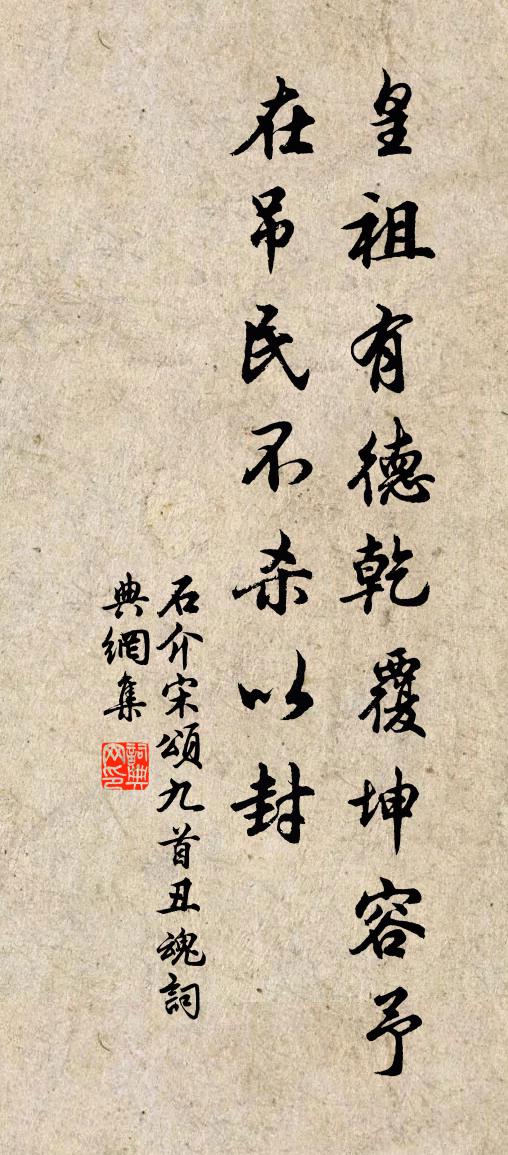 皇祖有德乾覆坤容予
在吊民不杀以封
石介宋頌九首丑魂詞
典網集
詞典
网印